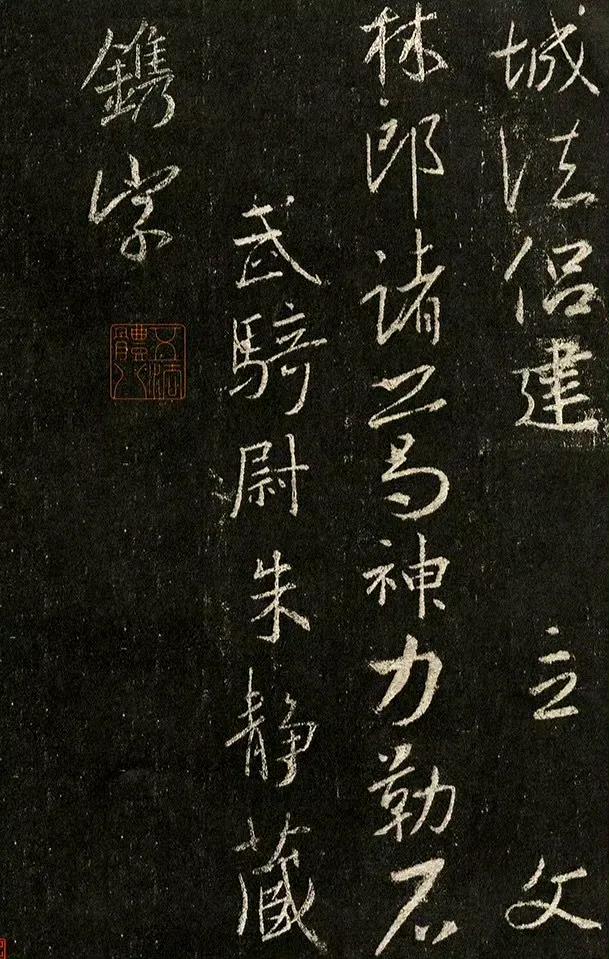 城法侶建立文
林郎諸葛神力勒石
武騎尉朱靜藏
鐫字